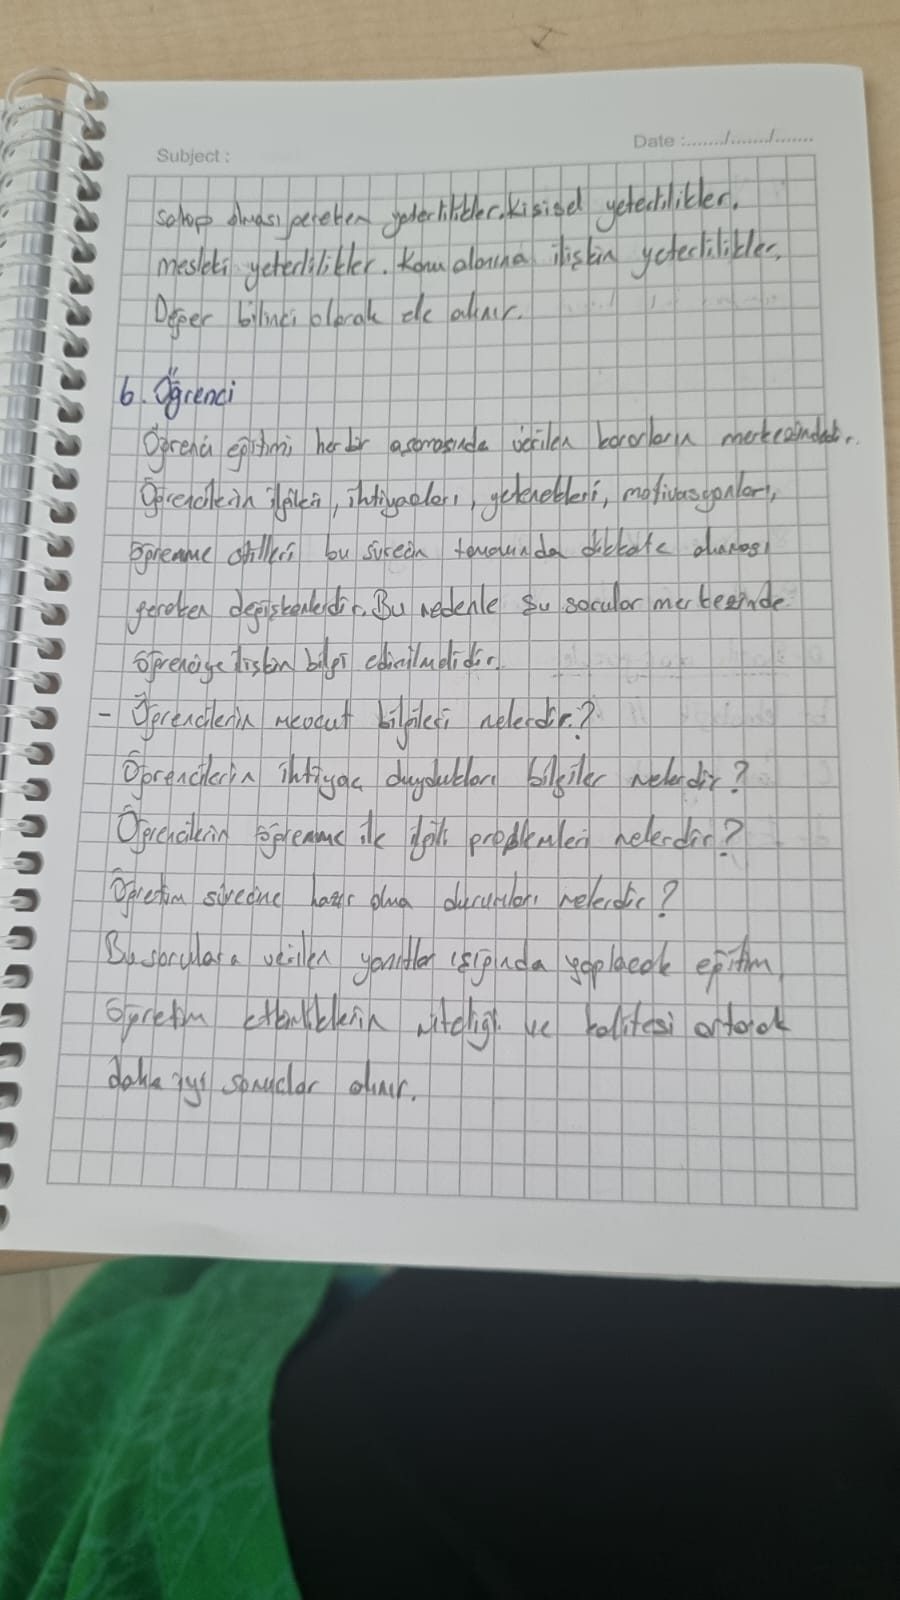 Subject :
Date :......./......./.......
sahip olması gereken yeterlilikler. Kişisel yeterlilikler.
mesleki yeterlilikler. Konu alanına ilişkin yeterlilikler.
Değer bilinci olarak ele alınır.
b. Öğrenci
Öğrenci eğitimi her bir aşamasında verilen kararların merkezindedir.
Öğrencilerin ilgileri, ihtiyaçları, yetenekleri, motivasyonları,
öğrenme stilleri bu sürecin tamamında dikkate alınması
gereken değişkenlerdir. Bu nedenle şu sorular merkezinde
öğrenciye ilişkin bilgi edinilmelidir.
- Öğrencilerin mevcut bilgileri nelerdir.?
Öğrencilerin ihtiyaç duydukları bilgiler nelerdir?
Öğrencilerin öğrenme ile ilgili problemleri nelerdir?
Öğretim sürecine hazır olma durumları nelerdir?
Bu sorulara verilen yanıtlar ışığında yapılacak eğitim
öğretim etkinliklerin niteliği ve kalitesi artarak
daha iyi sonuçlar alınır.